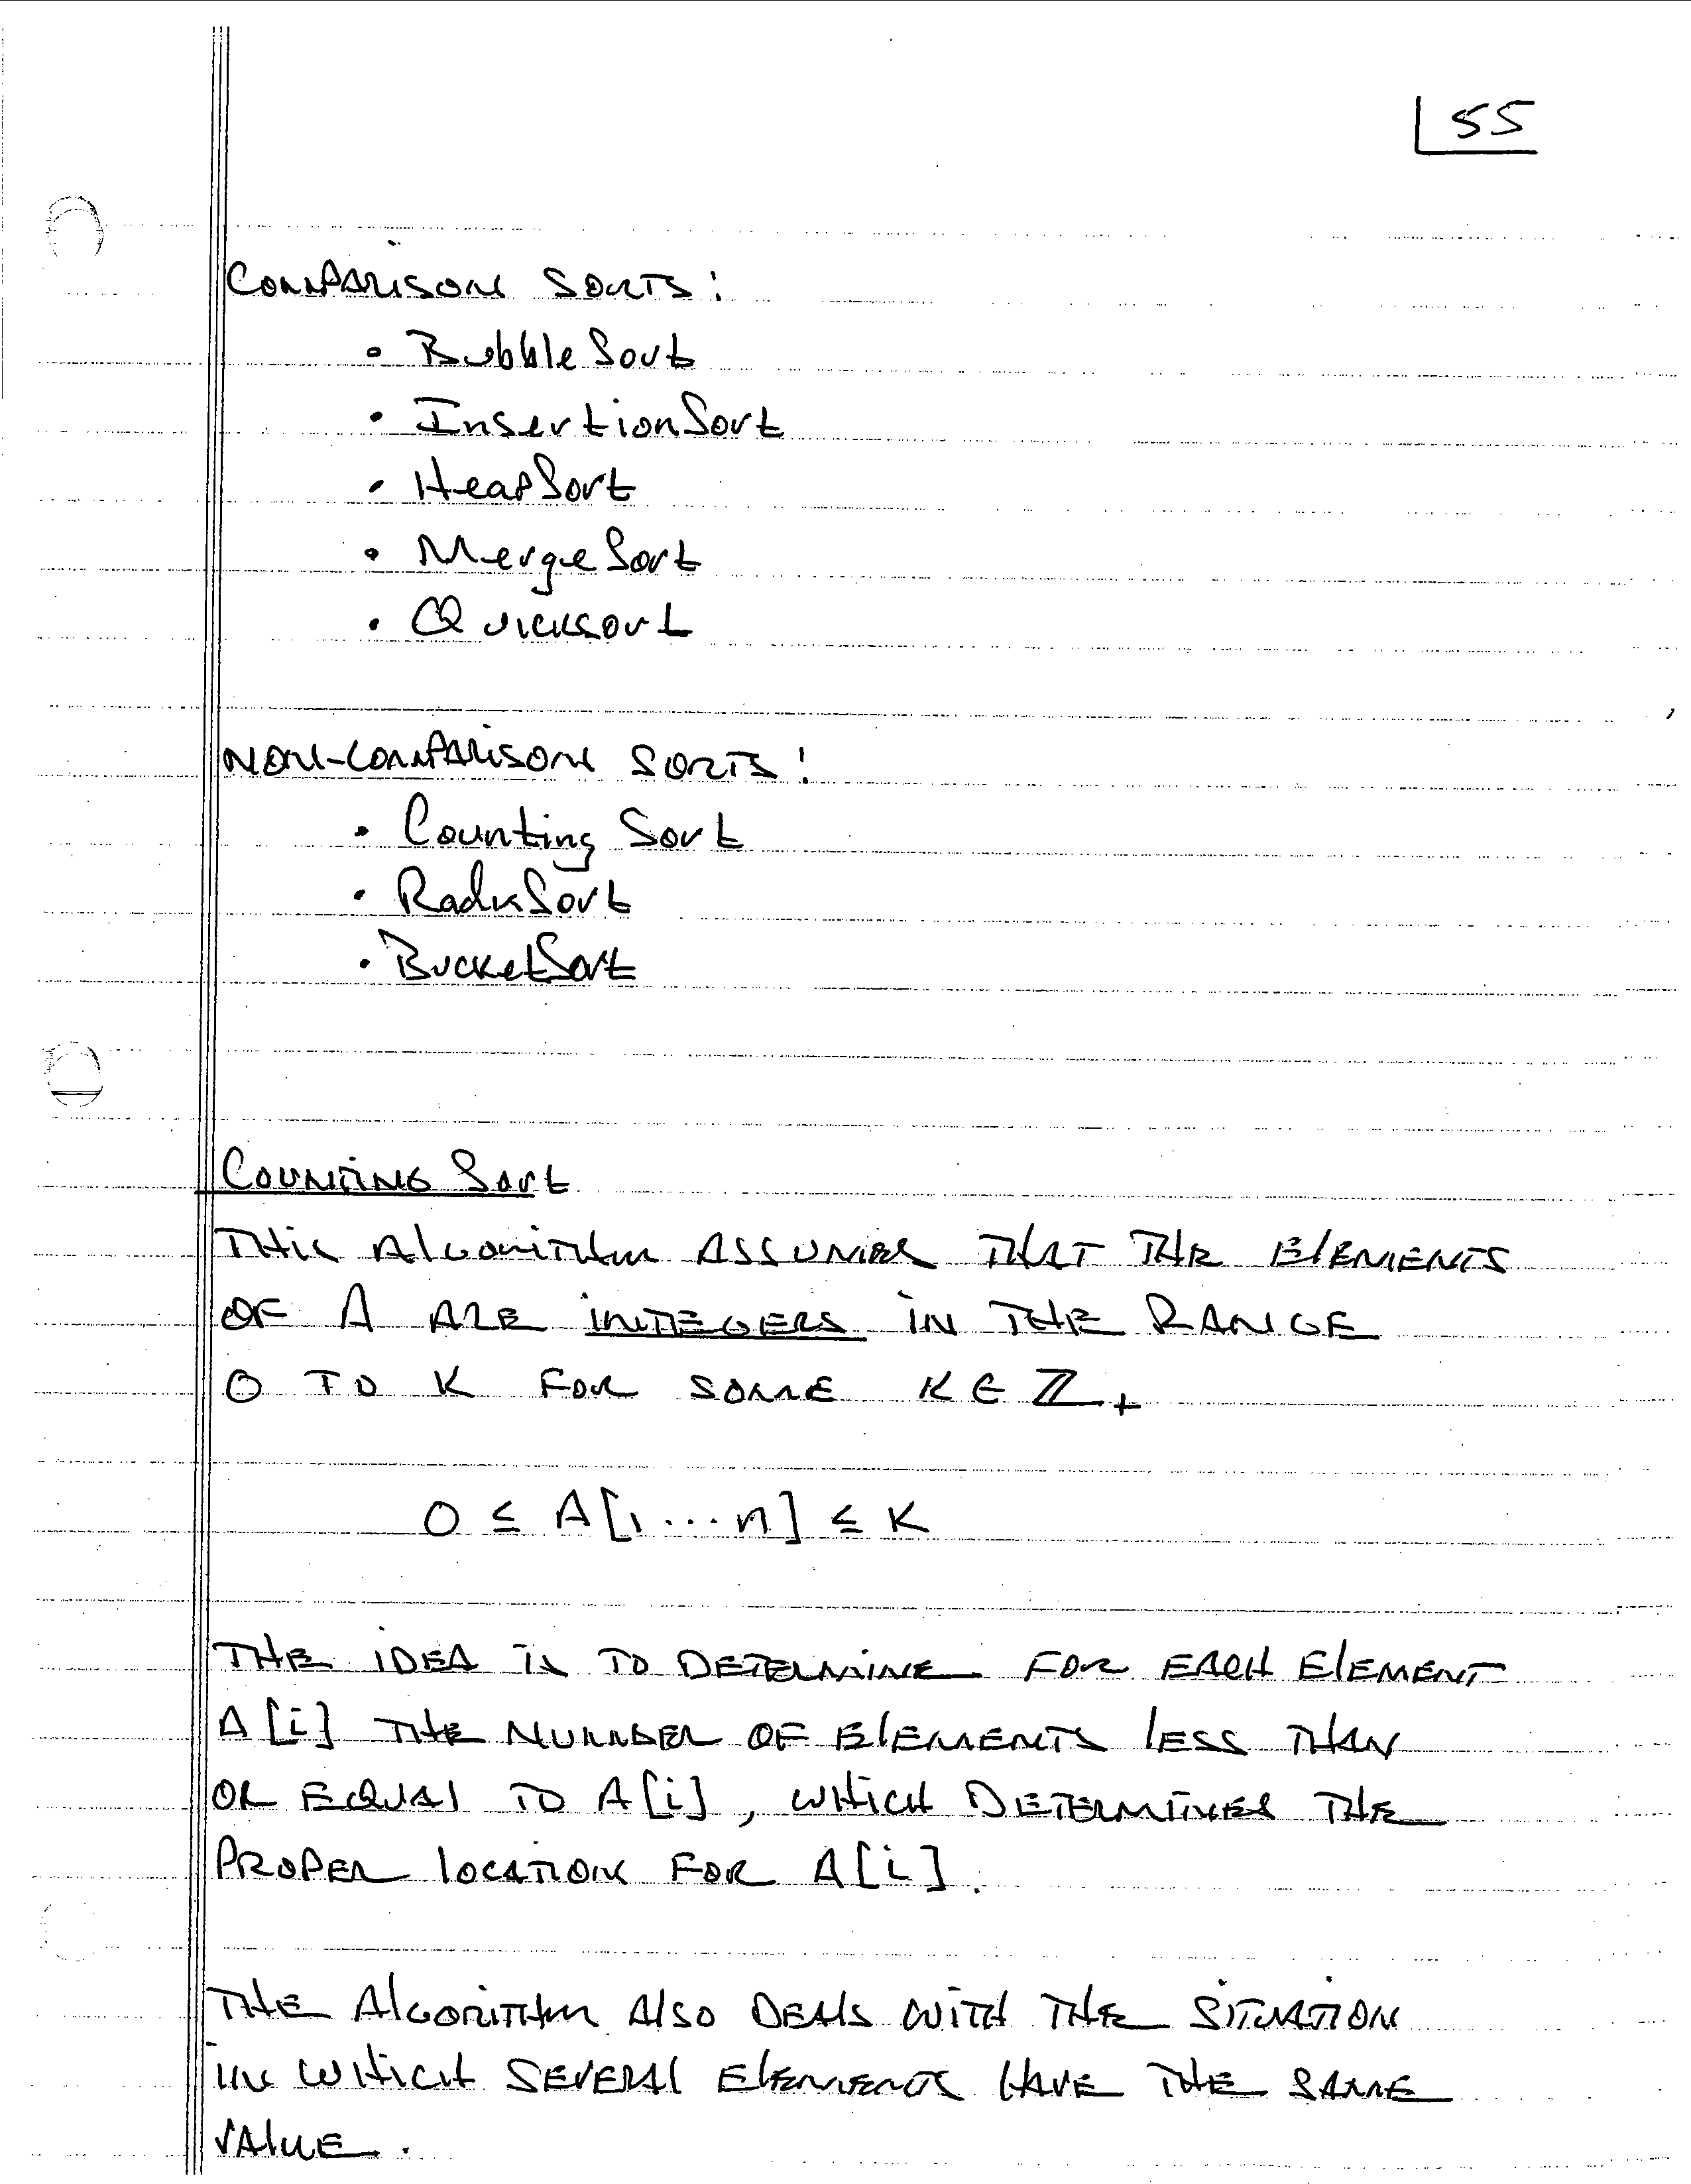 55
COMPARISON SORTS:
• BubbleSort
• InsertionSort
• HeapSort
• MergeSort
• Quicksort
NON-COMPARISON SORTS:
• Counting Sort
• RadixSort
• BucketSort
COUNTING Sort
THIS AlGORITHM ASSUMES THAT THE ElEMENTS
OF A ARE INTEGERS IN THE RANGE
0 TO K FOR SOME K ∈ ℤ₊
0 ≤ A[1...n] ≤ K
THE IDEA IS TO DETERMINE FOR EACH ElEMENT
A[i] THE NUMBER OF ElEMENTS lESS THAN
OR EQUAl TO A[i], WHICH DETERMINES THE
PROPER lOCATION FOR A[i].
THE AlGORITHM AlSO DEAlS WITH THE SITUATION
IN WHICH SEVERAl ElEMENTS HAVE THE SAME
VAlUE.